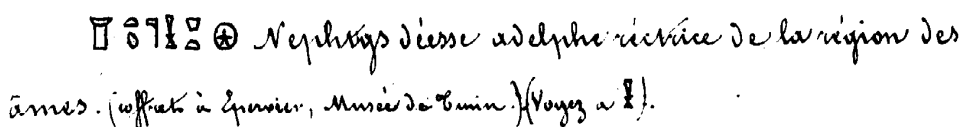 Nephtys déesse adelphe réctrice de la région des
âmes. (coffrets à Epervier, Musée de Turin.) (Voyez a ).